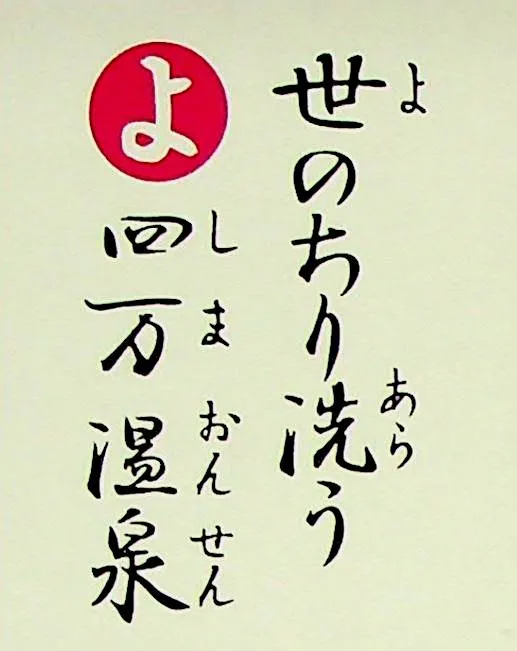 世のちり洗う
よ
あら
よ
四万温泉
しま
おんせん